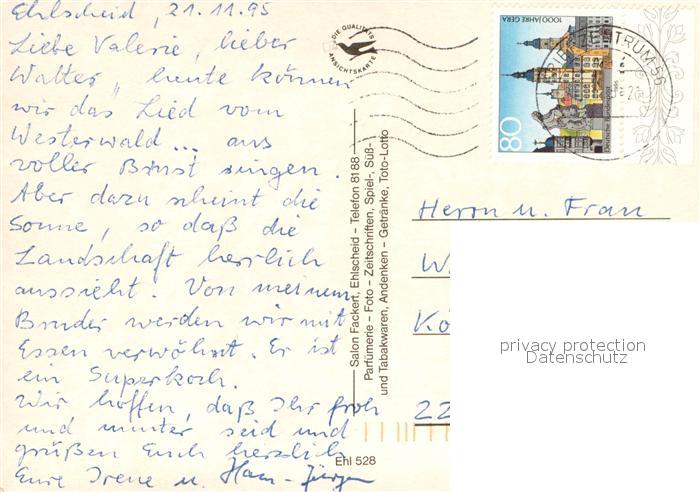 Ehlscheid, 21.11.95
Liebe Valerie, lieber
Walter, heute können
wir das Lied vom
Westerwald... aus
voller Brust singen.
Aber dazu scheint die
Sonne, so daß die
Landschaft herrlich
aussieht. Von meinem
Bruder werden wir mit
Essen verwöhnt. Er ist
ein Superkoch.
Wir hoffen, daß Ihr froh
und munter seid und
grüßen Euch herzlich
Eure Irene u. Hans-Jürgen
DIE QUALITÄTS
ANSICHTSKARTE
Salon Fackert, Ehlscheid – Telefon 8188
Parfümerie – Foto – Zeitschriften, Spiel-, Süß-
und Tabakwaren, Andenken – Getränke, Toto-Lotto
Ehl 528
1000 JAHRE GERA
80
Deutsche Bundespost
ZENTRUM 56
Herrn u. Frau
W
Kö
22
privacy protection
Datenschutz